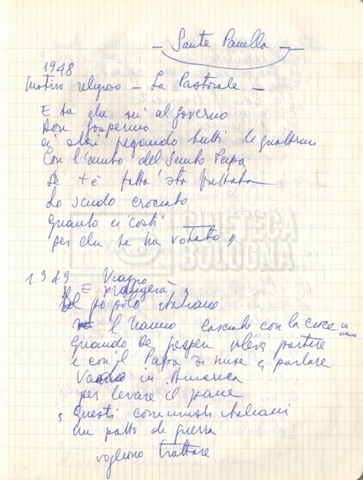 — Sante Panella —
1948
Motivo religioso — La Pastorale —
E tu che sei al governo
Don Gasperino
ci stai fregando tutti li quattrini
Con l'aiuto del Santo Papa
Se t'è fatta 'sta frittata
Lo scudo crociato
Quanto ci costi
per chi te ha votato
CINETECA
BOLOGNA
1949 Viaggio
E
popolo italiano
l'hanno lasciato con la croce in mano
quando De Gasperi voleva partire
e con il Papa si mise a parlare
Vado in America
per levare il pane
a questi comunisti italiani
un patto di guerra
vogliono trattare